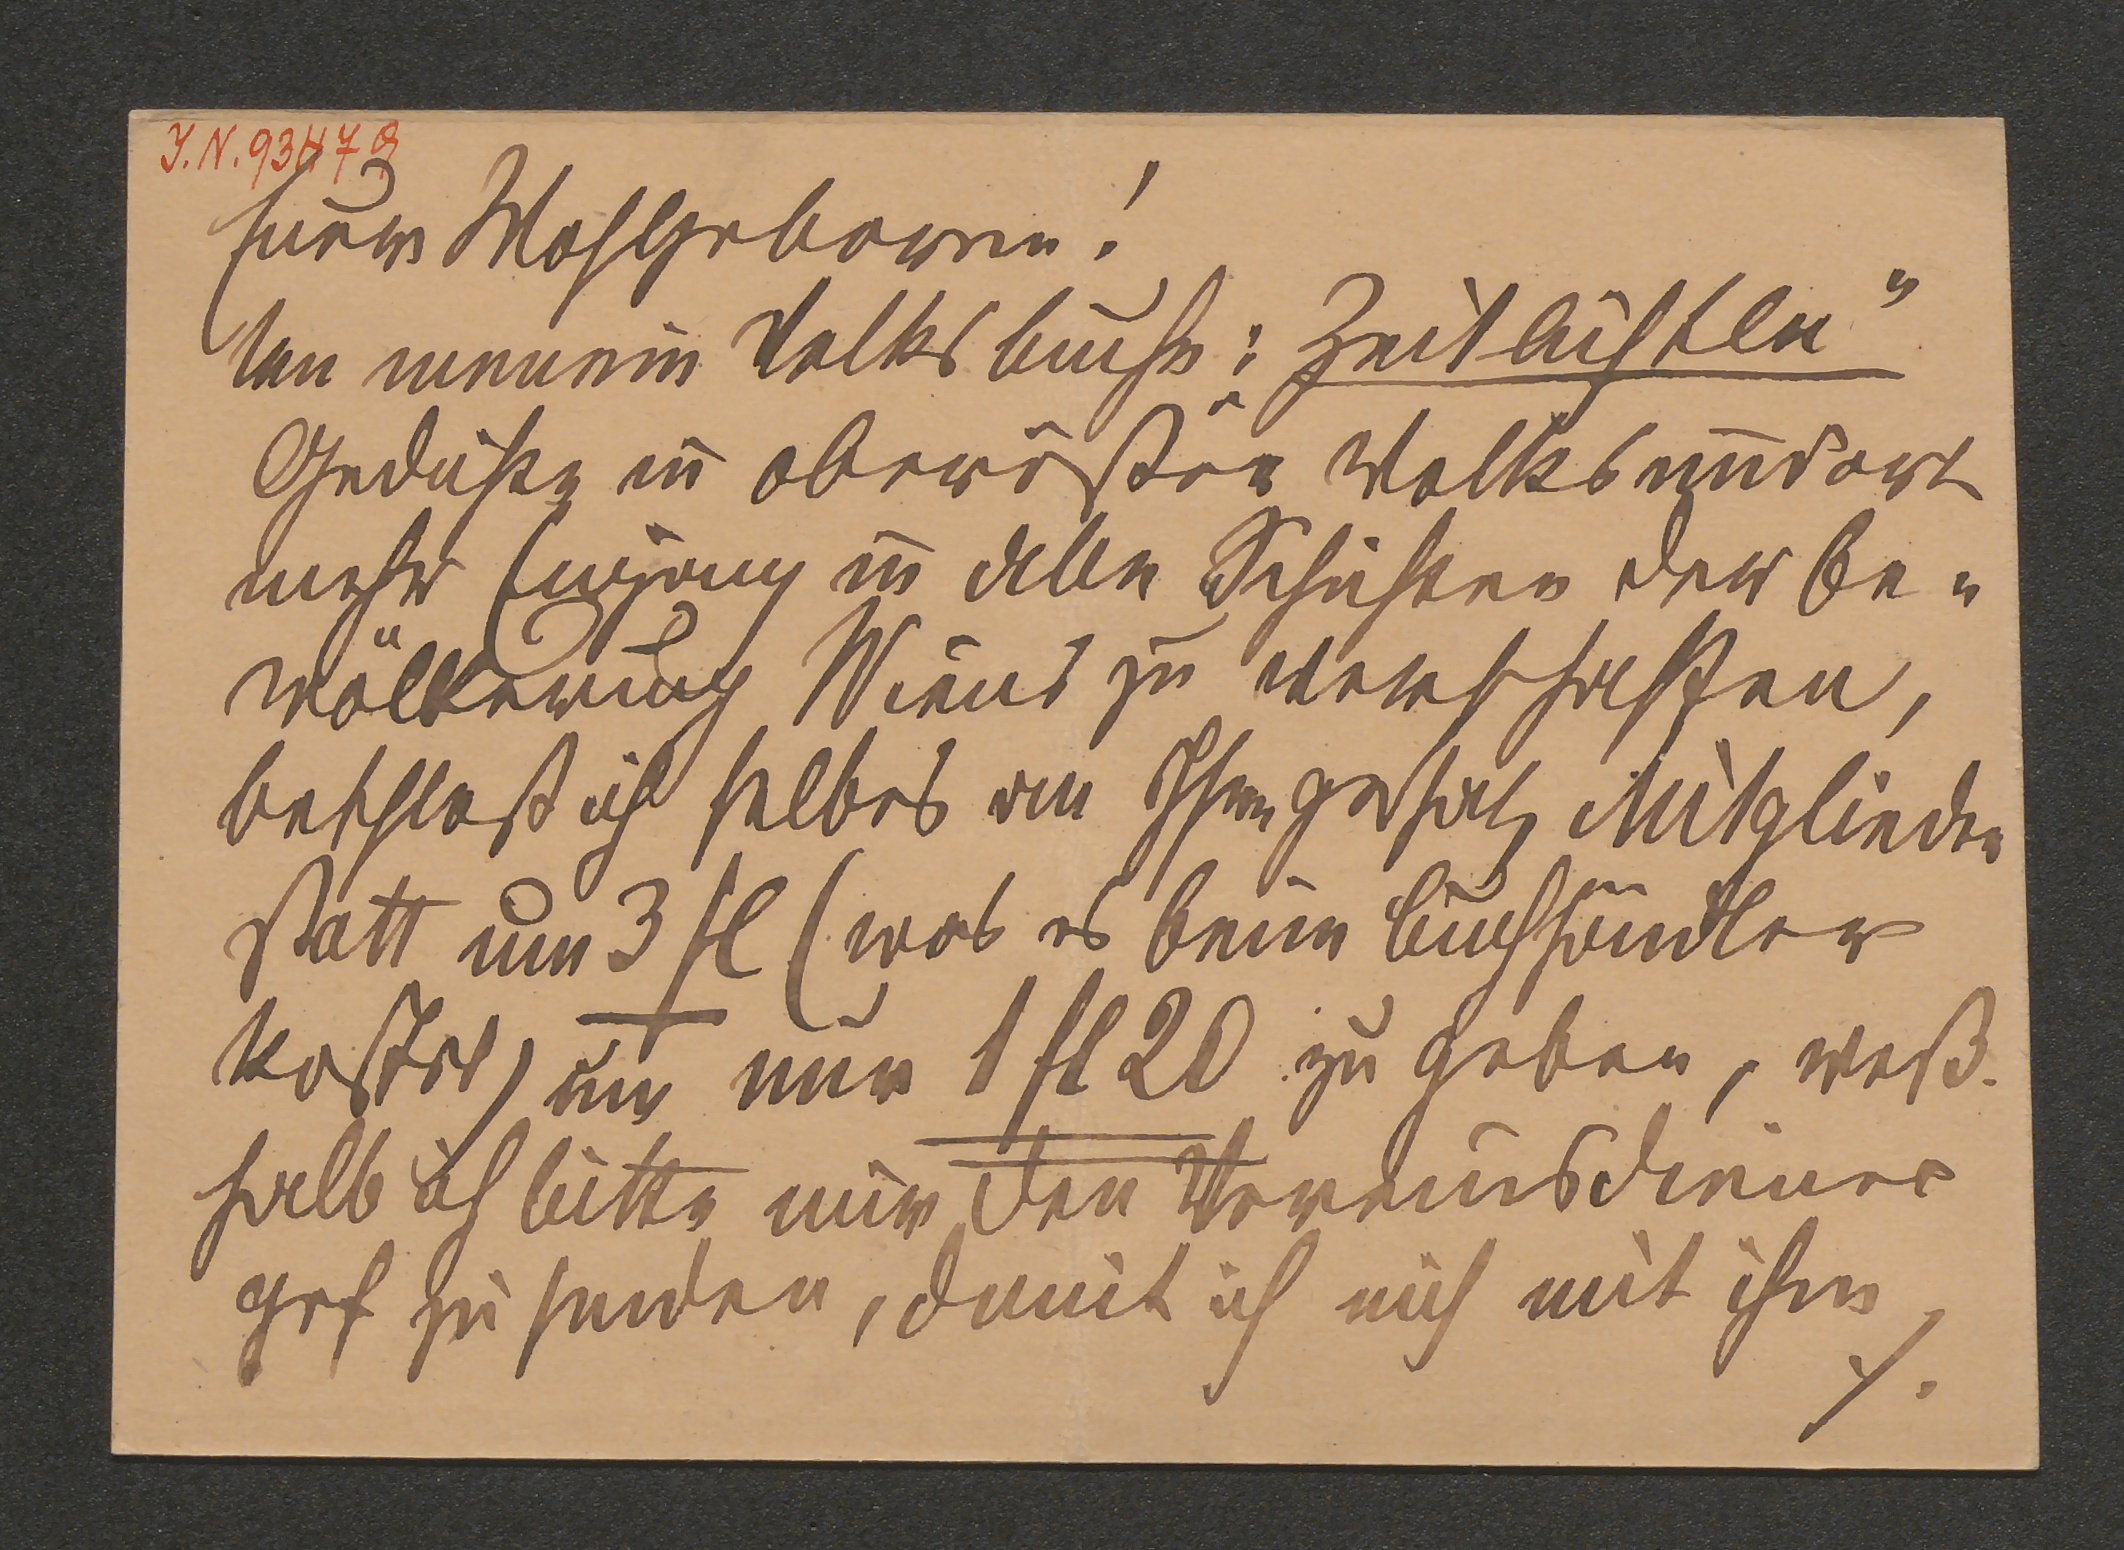 J.N. 93479
Euer Wohlgeboren!
Um meinem Volksbuche: „Zeitlichteln"
Gedichte in oberösterr Volksmundart
mehr Eingang in allen Schichten der Be-
völkerung Wiens zu verschaffen,
beschloß ich selbes an Ihre Mitglieder
statt um 3 fl (was es beim Buchhändler
kostet) um nur 1 fl 20 zu geben, weß-
halb ich bitte mir den Vereinsdiener
gef zu senden, damit ich mich mit ihm
/.